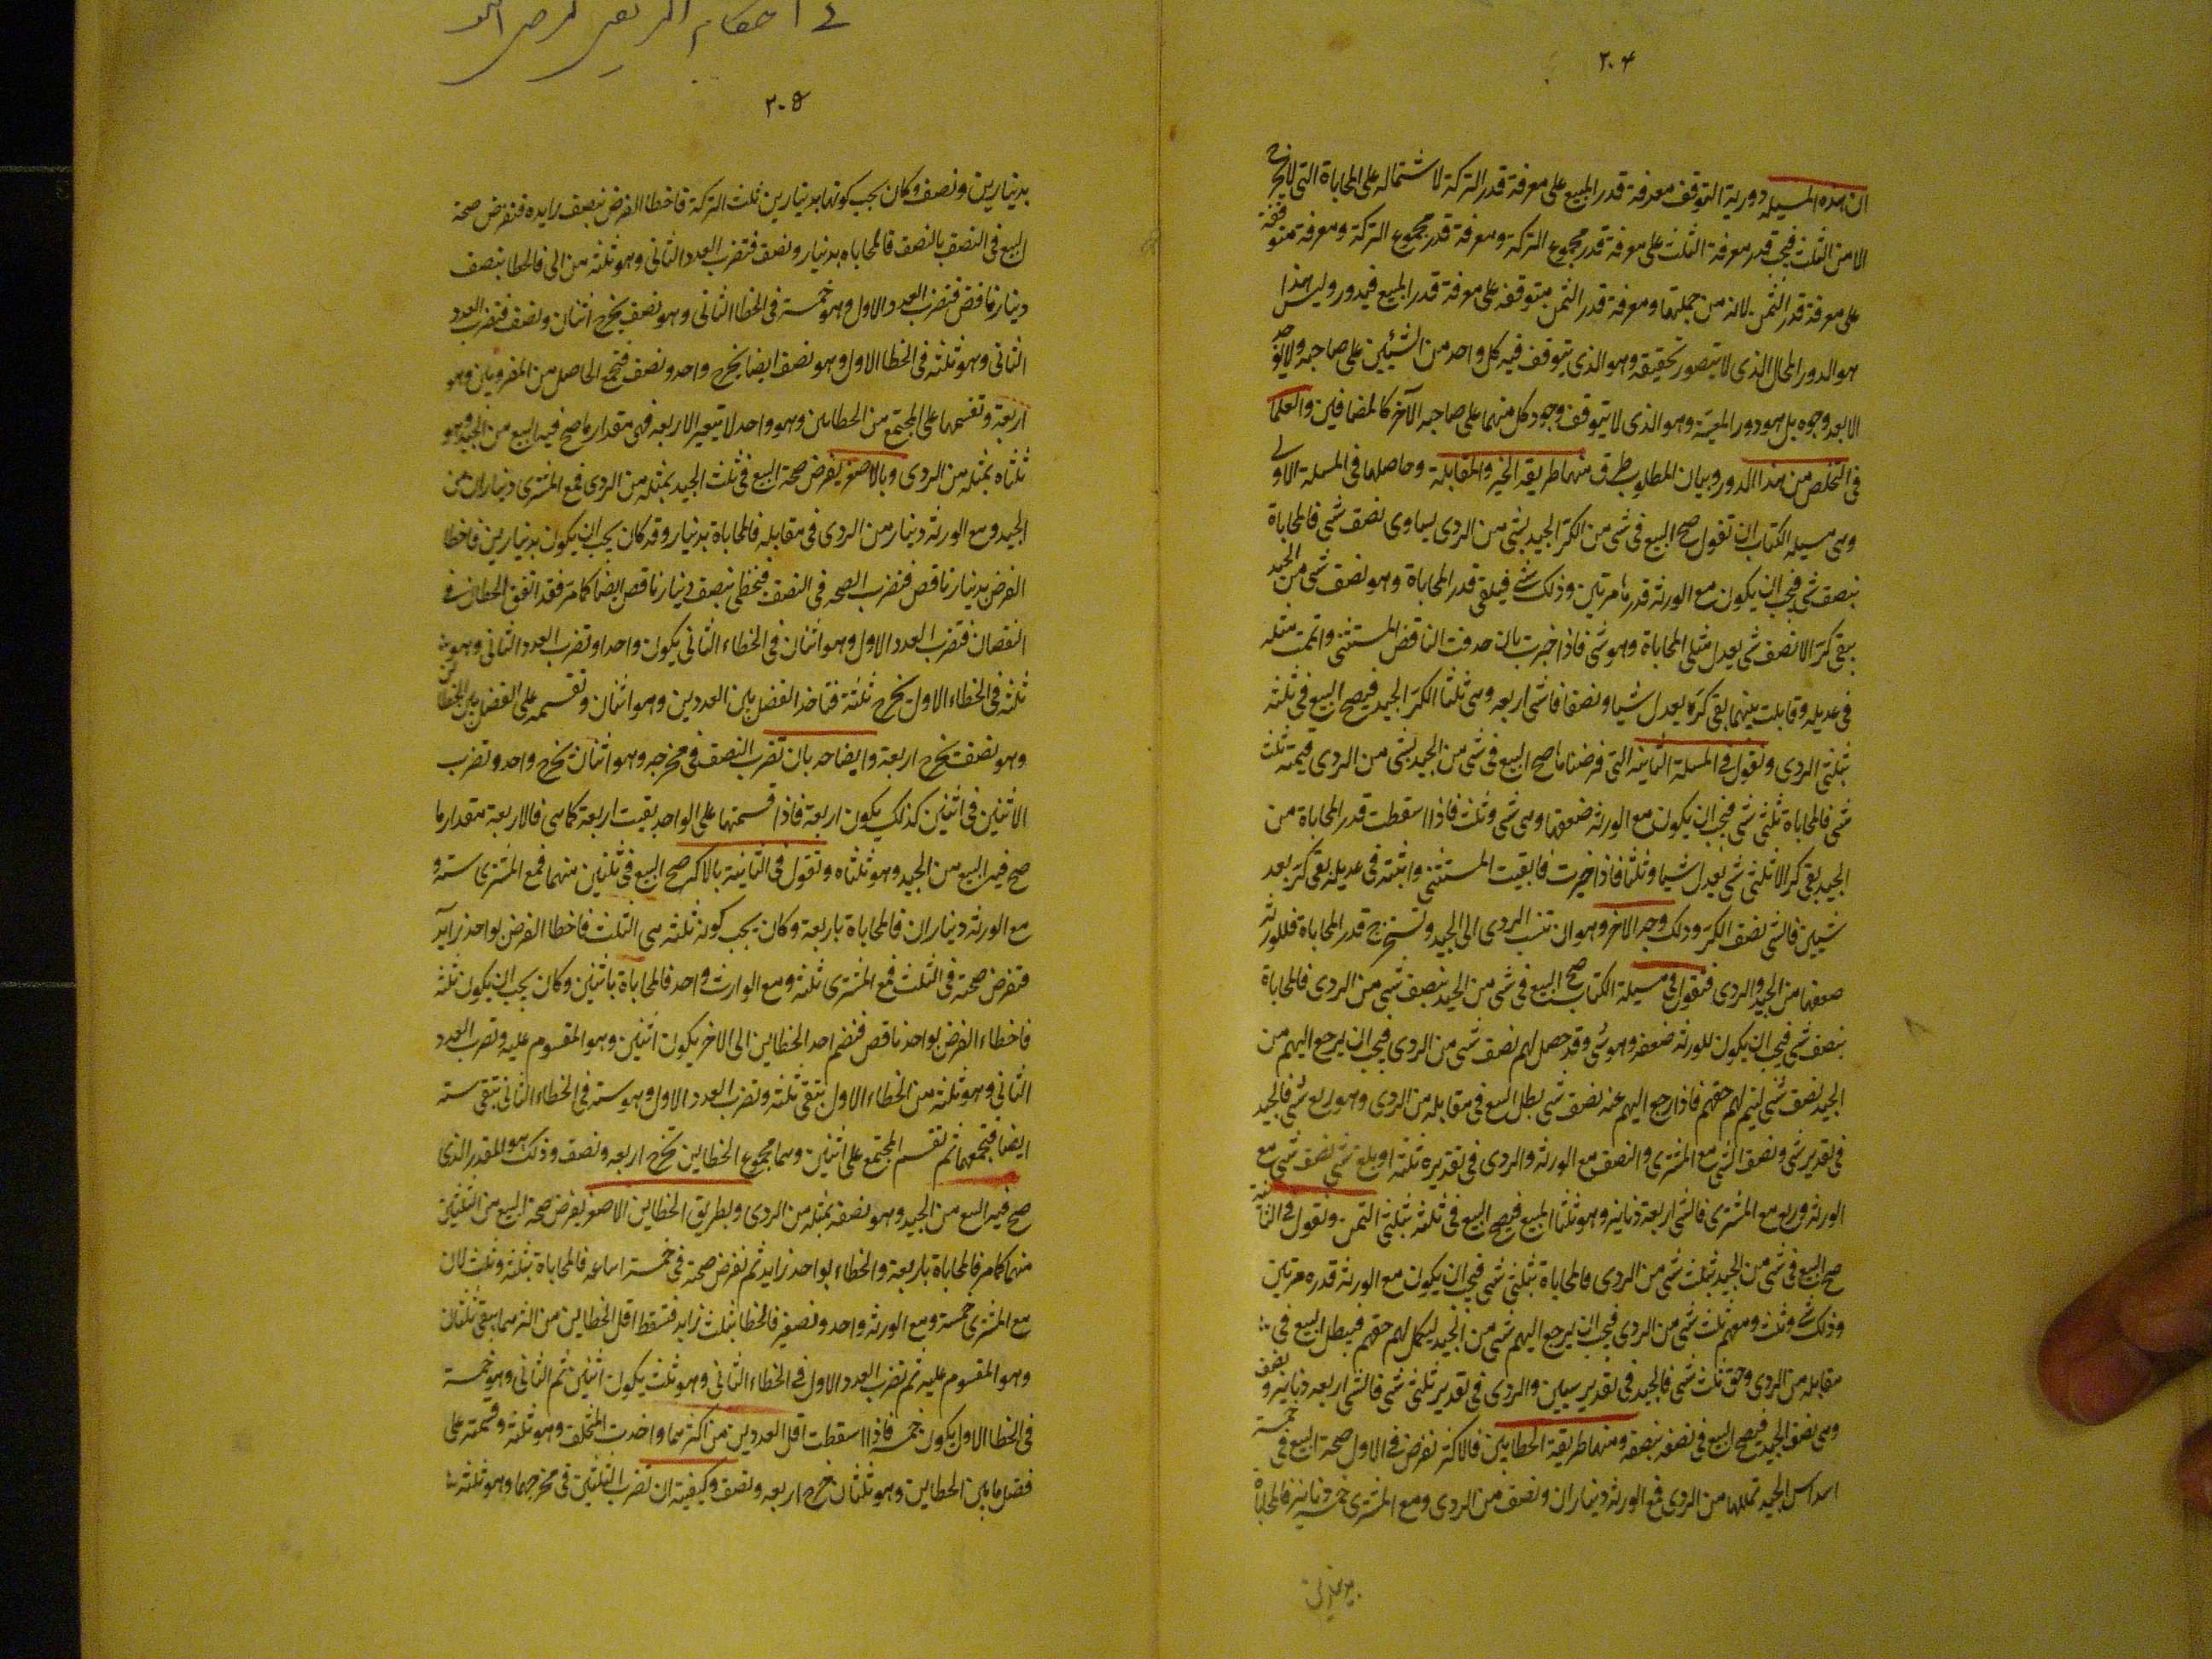 ٣٠٤
ان هذه المسيله دورية التوقف معرفة قدر المبيع على معرفة قدر التركة لاشتماله على المحاباة التي لا تخرج
الا من الثلث فيجب قدر معرفة الثلث على معرفة قدر مجموع التركة ومعرفة قدر مجموع التركة ومعرفة متوقفة
على معرفة قدر الثمن لانه من جملتها ومعرفة قدر الثمن متوقفه على معرفة قدر المبيع فيدور وليس هذا
هو الدور المحال الذى لا يتصور تحقيقه وهو الذى يتوقف فيه كل واحد من الشيئين على صاحبه ولا يوجد
الا بعد وجوه بل هو دور المعية وهو الذى لا يتوقف وجود كل منهما على صاحبه الآخر كالمضافين والعلما
فى التخلص من هذا الدور وبيان المطلوب طرق منها طريقه الجبر والمقابلة وحاصلها فى المسله الاولى
وهى مسيله الكتاب ان تقول صح البيع فى شى من الكر الجيد بشى من الردى يساوى نصف شى فالمحاباة
بنصف شى فيجب ان يكون مع الورثه قدرها مرتين وذلك شى فيلقى قدر المحاباة وهو نصف شى من الجيد
يبقى كر الا نصف شى يعدل مثلى المحاباة وهو شى فاذا جبرت بان حذفت الناقص المستثنى واتمت مثله
فى عديله وقابلت بينهما بقى كر يعدل شيا ونصفا فالشى اربعه وهى ثلثا الكر الجيد فيصح البيع فى ثلثه
بثلثى الردى ونقول فى المسلة الثانيه التى فرضناها صح البيع فى شى من الجيد بشى من الردى قيمته ثلث
شى فالمحاباة ثلثى شى فيجب ان يكون مع الورثه ضعفها وهى شى وثلث فاذا اسقطت قدر المحاباة من
الجيد بقى كر الا ثلثى شى يعدل شيا وثلثا فاذا جبرت فابقيت المستثنى واثبته فى عديله بقى كر يعد
شيين فالشى نصف الكر وذلك وجه الاخر وهو ان تنسب الردى الى الجيد وتستخرج قدر المحاباة فللورثه
ضعفها من الجيد والردى فنقول فى مسيلة الكتاب صح البيع فى شى من الجيد بنصف شى من الردى فالمحاباة
بنصف شى فيجب ان يكون للورثه ضعفه وهو شى وقد حصل لهم نصف شى من الردى فيجب ان يرجع اليهم من
الجيد نصف شى ليتم لهم حقهم فاذا رجع اليهم عنه نصف شى بطل البيع فى مقابله من الردى وهو ربع شى فالجيد
فى تقدير شى ونصف الشى مع المشترى والنصف مع الورثه والردى فى تقديره ثلثه ارباع شى نصف شى مع
الورثه وربع مع المشترى فالشى اربعة دنانير وهو ثلثا المبيع فيصح البيع فى ثلثه بثلثى الثمن ونقول فى الثانية
صح البيع فى شى من الجيد بثلث شى من الردى فالمحاباة بثلثى شى فيجب ان يكون مع الورثه قدره مرتين
وذلك شى وثلث ومعهم ثلث شى من الردى فيجب ان يرجع اليهم شى من الجيد ليكمل لهم حقهم فيبطل البيع فى
مقابله من الردى وهو ثلث شى فالجيد فى تقدير شيين والردى فى تقدير ثلثى شى فالشى اربعه دنانير ونصف
وهى نصف الجيد فيصح البيع فى نصفه بنصفه ومنها طريقة الخطاين فالاكثر نفرض فى الاول صحة البيع فى خمسة
اسداس الجيد بمثلها من الردى فمع الورثه ديناران ونصف من الردى ومع المشترى خمسه دنانير فالمحاباة
بدينارين
فى احكام المريض
٣٠٥
بدينارين ونصف وكان يجب كونها بدينارين ثلث التركة فاخطا الفرض بنصف زايده فنفرض صحة
البيع فى النصف بالنصف فالمحاباه بدينار ونصف فتضرب العدد الثانى وهو ثلثه من الى فالخطا بنصف
دينار ناقص فتضرب العدد الاول وهو خمسة فى الخطا الثانى وهو نصف يخرج اثنان ونصف فتضرب العدد
الثانى وهو ثلثه فى الخطا الاول وهو نصف ايضا يخرج واحد ونصف فتجمع الحاصل من المضروبين وهو
اربعة وتقسمها على المجتمع من الخطاين وهو واحد لا يتغير الاربعه فهى مقدار ما صح فيه البيع من الجيد وهو
ثلثاه بمثله من الردى وبالاصغر يفرض صحة البيع فى ثلث الجيد بمثله من الردى فمع المشترى ديناران من
الجيد ومع الورثه دينار من الردى فى مقابله فالمحاباة بدينار وقد كان يجب ان يكون بدينارين فاخطا
الفرض بدينار ناقص فتضرب الصحه فى النصف فيخطى بنصف دينار ناقص ايضا كما مر فقد اتفق الخطاان فى
النقصان فتضرب العدد الاول وهو اثنان فى الخطاء الثانى يكون واحدا وتضرب العدد الثانى وهو
ثلثه فى الخطاء الاول يخرج ثلثة فتاخذ الفضل بين العددين وهو اثنان وتقسمه على الفضل بين الخطاين
وهو نصف يخرج اربعة وايضاحه بان تضرب النصف فى مخرجه وهو اثنان يخرج واحد وتضرب
الاثنين فى اثنين كذلك يكون اربعة فاذا قسمتها على الواحد بقيت اربعة كما هى فالاربعة مقدار ما
صح فيه البيع من الجيد وهو ثلثاه وتقول فى الثانية بالاكبر صح البيع فى ثلثين منهما فمع المشترى سته و
مع الورثه ديناران فالمحاباة باربعه وكان يجب كونه ثلثه هى الثلث فاخطا الفرض بواحد زايد
فتفرض صحته فى الثلث فمع المشترى ثلثه ومع الوارث واحد فالمحاباة باثنين وكان يجب ان يكون ثلثه
فاخطاء الفرض بواحد ناقص فتضم احد الخطاين الى الاخر يكون اثنين وهو المقسوم عليه وتضرب العدد
الثانى وهو ثلثه من الخطاء الاول يبقى ثلثه وتضرب العدد الاول وهو سته فى الخطاء الثانى تبقى سته
ايضا فتجمعهما ثم تقسم المجتمع على اثنين وهما مجموع الخطاين يخرج اربعه ونصف وذلك هو المقدر الذى
صح فيه البيع من الجيد وهو نصفه بمثله من الردى وبطريق الخطاين الاصغر يفرض صحة البيع من الثلثين
منهما كما مر فالمحاباة باربعة والخطاء بواحد زايد ثم نفرض صحته فى خمسة اتساعه فالمحاباة بثلثه وثلث لان
مع المشترى خمسة ومع الورثه واحد وثلثين فالخطا بثلث زايد فتسقط اقل الخطاين من اكثرهما يبقى ثلثان
وهو المقسوم عليه ثم تضرب العدد الاول فى الخطاء الثانى وهو ثلث يكون اثنين ثم الثانى وهو خمسة
فى الخطا الاول يكون خمسه فاذا اسقطت اقل العددين من اكثرهما واخذت المتخلف وهو ثلثه وقسمته على
فضل ما بين الخطاين وهو ثلثان خرج اربعه ونصف وكيفية ان تضرب الثلثين فى مخرجهما وهو ثلثه